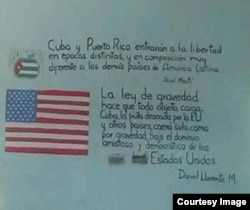 Cuba y Puerto Rico entrarán a la libertad
en épocas distintas, y en composición muy
diferente a los demás países de América Latina
José Martí
La ley de gravedad,
hace que todo objeto caiga,
Cuba, la fruta deseada por la EU
y otros países, caerá sola como
por gravedad, bajo el dominio
amistoso y democrático de los
Estados Unidos
Daniel Llorente M.
Courtesy Image